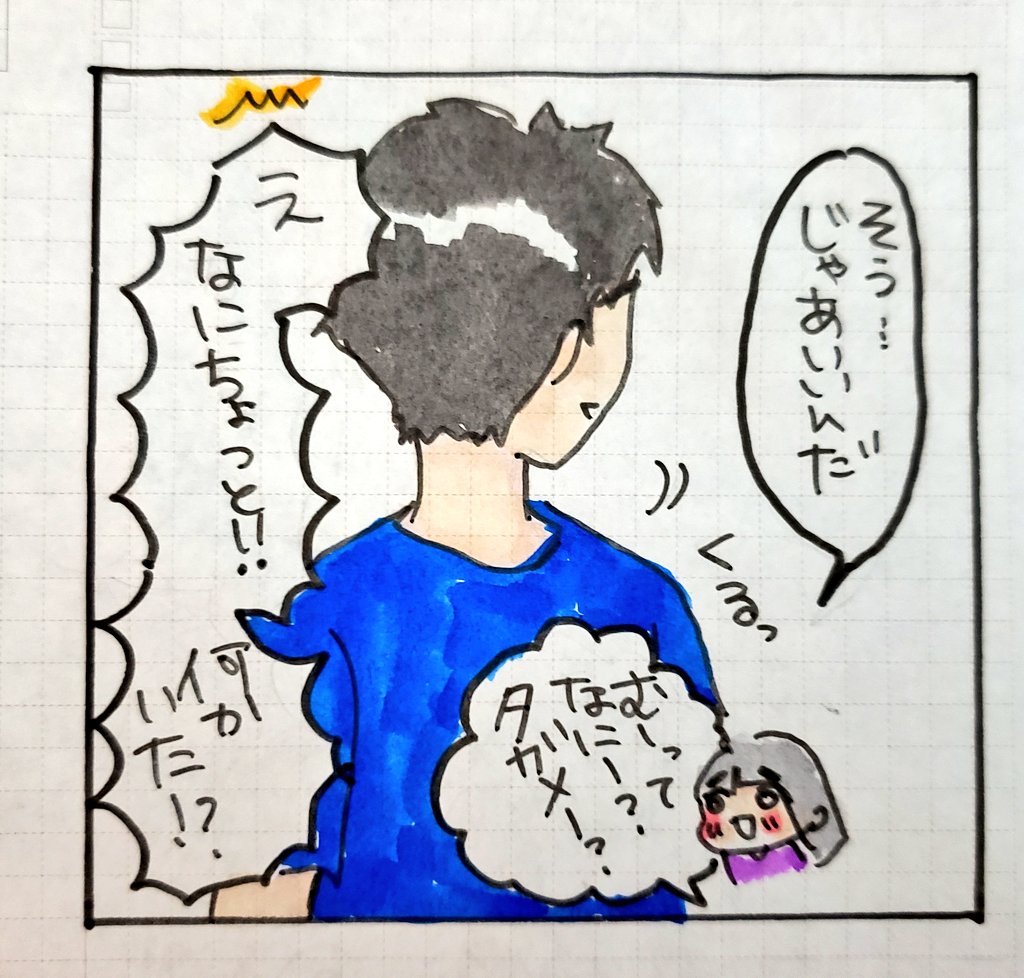 そう…
じゃあいいんだ
くるっ
え
なにちょっと!!
何か
いた!?
むーって
なにー?
タガメー?